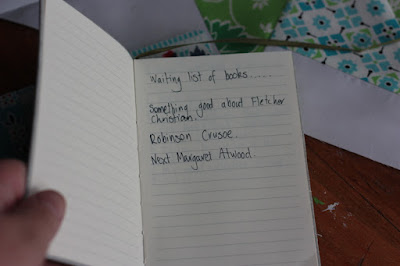 Waiting list of books......
Something good about Fletcher
Christian.
Robinson Crusoe.
Next Margaret Atwood.